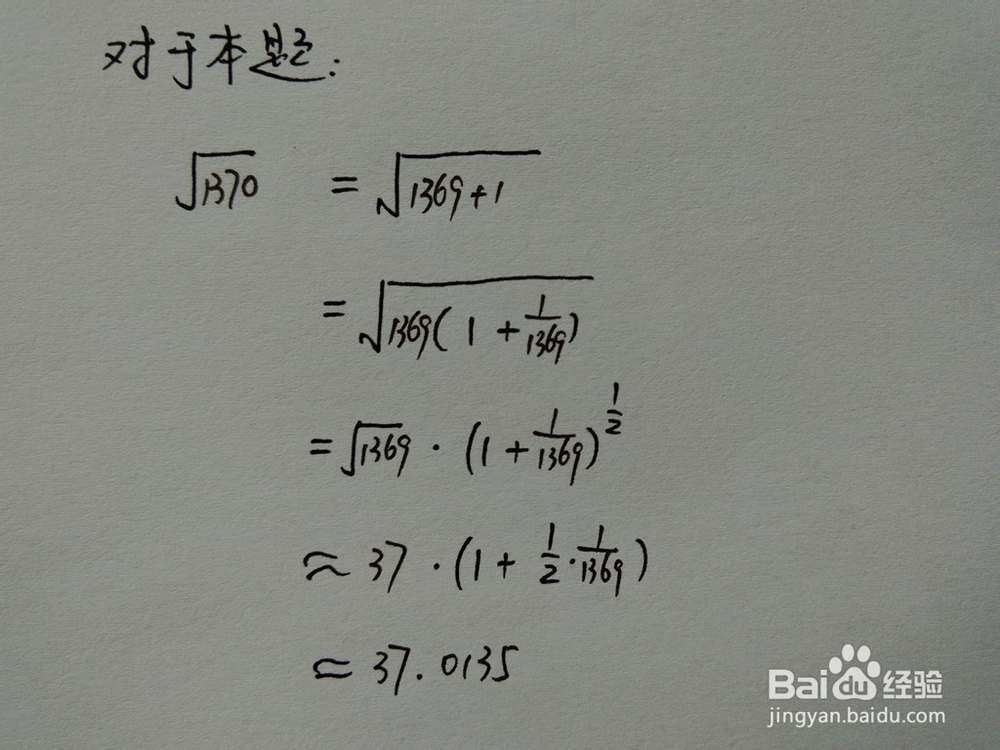 对于本题:
√1370 = √(1369+1)
= √(1369(1+1/1369))
= √1369 · (1+1/1369)^(1/2)
≈ 37 · (1+1/2·1/1369)
≈ 37.0135
Baidu 经验
jingyan.baidu.com